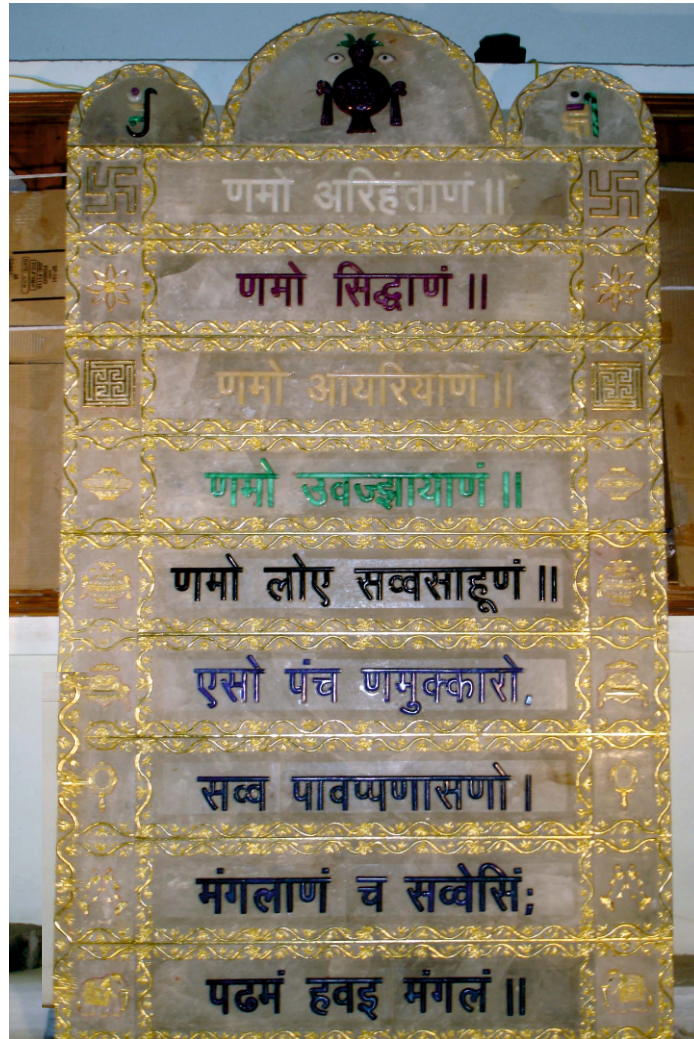 णमो अरिहंताणं॥
णमो सिद्धाणं॥
णमो आयरियाणं॥
णमो उवज्झायाणं॥
णमो लोए सव्वसाहूणं॥
एसो पंच णमुक्कारो.
सव्व पावप्पणासणो।
मंगलाणं च सव्वेसिं;
पढमं हवइ मंगलं॥